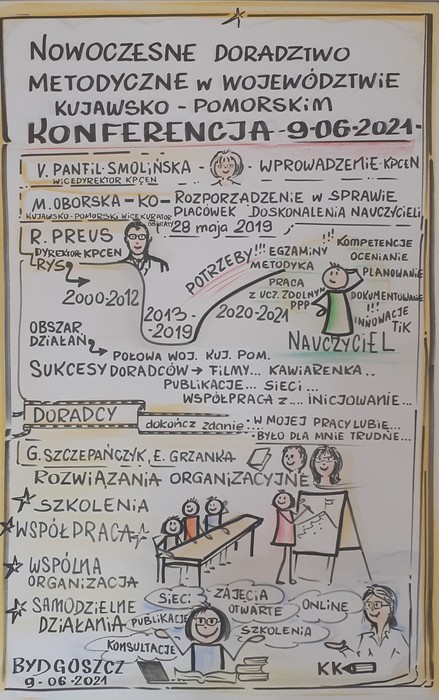 NOWOCZESNE DORADZTWO
METODYCZNE W WOJEWÓDZTWIE
KUJAWSKO - POMORSKIM
KONFERENCJA - 9-06-2021 -
V. PANFIL-SMOLIŃSKA
WICEDYREKTOR KPCEN
- WPROWADZENIE - KPCEN
M. OBORSKA - KO -
KUJAWSKO-POMORSKI WICEKURATOR
OŚWIATY
ROZPORZĄDZENIE W SPRAWIE
PLACÓWEK DOSKONALENIA NAUCZYCIELI
28 maja 2019
R. PREUS
DYREKTOR KPCEN
RYS
2000-2012
2013-
-2019
2020-2021
POTRZEBY!!!
EGZAMINY
METODYKA
PRACA
Z UCZ. ZDOLNYM
PPP
!!! KOMPETENCJE
OCENIANIE
PLANOWANIE
DOKUMENTOWANIE
!!!
INNOWACJE
TIK
NAUCZYCIEL
OBSZAR
DZIAŁAŃ
POŁOWA WOJ. KUJ. POM.
SUKCESY DORADCÓW → FILMY... KAWIARENKA..
PUBLIKACJE... SIECI...
WSPÓŁPRACA Z.... INICJOWANIE...
DORADCY
dokończ zdanie:
W MOJEJ PRACY LUBIĘ...
BYŁO DLA MNIE TRUDNE...
G. SZCZEPAŃCZYK, E. GRZANKA
ROZWIĄZANIA ORGANIZACYJNE
SZKOLENIA
WSPÓŁPRACA
WSPÓLNA
ORGANIZACJA
SAMODZIELNE
DZIAŁANIA
SIECI
ZAJĘCIA
OTWARTE
ONLINE
PUBLIKACJE
SZKOLENIA
KONSULTACJE
BYDGOSZCZ
9-06-2021
KK